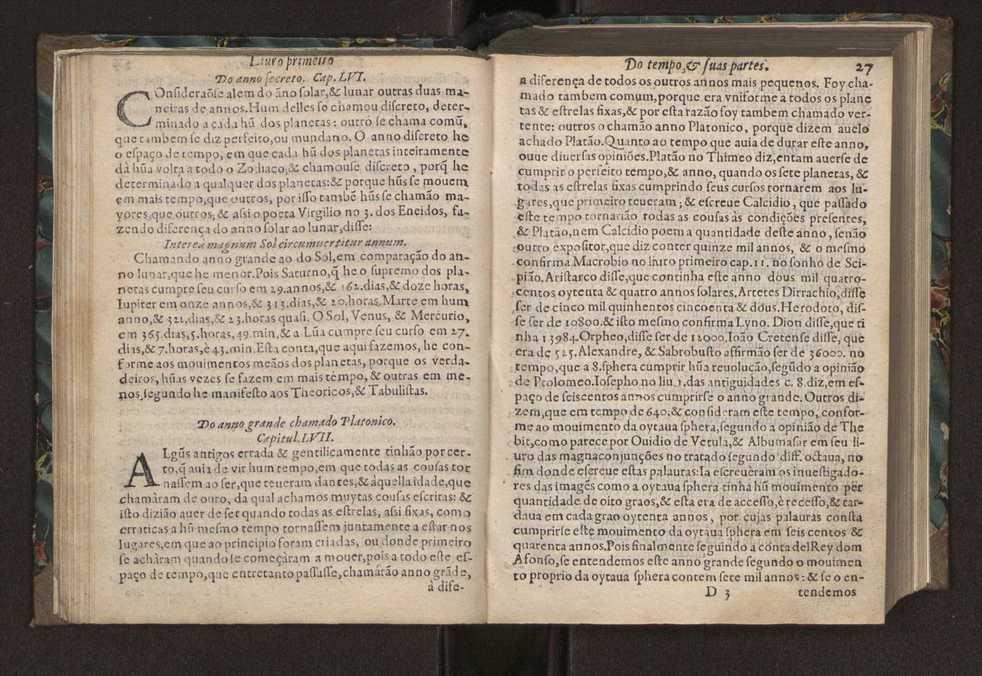 Liuro primeiro
Do anno secreto. Cap. LVI.
COnsideraõse alem do ãno solar,& lunar outras duas ma-
neiras de annos.Hum delles se chamou discreto, deter-
minado a cada hũ dos planetas: outro se chama comũ,
que tambem se diz perfeito,ou mundano. O anno discreto he
o espaço de tempo, em que cada hũ dos planetas inteiramente
dà hũa volta a todo o Zodiaco,& chamouse discreto , porq̃ he
determinado a qualquer dos planetas:& porque hũs se mouem
em mais tempo,que outros, por isso tambẽ hũs se chamão ma-
yores,que outros, & assi o poeta Virgilio no 3. dos Eneidos, fa-
zendo diferença do anno solar ao lunar,disse:
Interea magnum Sol circumuertitur annum.
Chamando anno grande ao do Sol,em comparação do an-
no lunar,que he menor.Pois Saturno,q̃ he o supremo dos pla-
netas cumpre seu curso em 29.annos,& 162.dias,& doze horas,
Iupiter em onze annos,& 313.dias,& 20.horas.Marte em hum
anno,& 321,dias,& 23.horas quasi. O Sol, Venus, & Mercurio,
em 365.dias,5.horas,49.min.& a Lũa cumpre seu curso em 27.
dias,& 7.horas,e 43.min.Esta conta,que aqui fazemos, he con-
forme aos mouimentos meãos dos planetas, porque os verda-
deiros, hũas vezes se fazem em mais tempo, & outras em me-
nos,segundo he manifesto aos Theoricos,& Tabulistas.
Do anno grande chamado Platonico.
Capitul.LVII.
ALgũs antigos errada & gentilicamente tinhão por cer-
to,q̃ auia de vir hum tempo,em que todas as cousas tor
nassem ao ser,que teueram dantes,& àquella idade,que
chamàram de ouro, da qual achamos muytas cousas escritas: &
isto dizião auer de ser quando todas as estrelas, assi fixas, como
erraticas a hũ mesmo tempo tornassem juntamente a estar nos
lugares,em que ao principio foram criadas, ou donde primeiro
se achàram quando se começàram a mouer,pois a todo este es-
paço de tempo,que entretanto passasse,chamàrão anno grãde,
à dife-
Do tempo,& suas partes. 27
a diferença de todos os outros annos mais pequenos. Foy cha-
mado tambem comum,porque era vniforme a todos os plane
tas & estrelas fixas,& por esta razão foy tambem chamado ver-
tente: outros o chamão anno Platonico, porque dizem auelo
achado Platão.Quanto ao tempo que auia de durar este anno,
ouue diuersas opiniões.Platão no Thimeo diz,entam auerse de
cumprir o perfeito tempo,& anno, quando os sete planetas, &
todas as estrelas fixas cumprindo seus cursos tornarem aos lu-
gares,que primeiro teueram; & escreue Calcidio, que passado
este tempo tornarião todas as cousas às condições presentes,
& Platão,nem Calcidio poem a quantidade deste anno, senão
outro expositor,que diz conter quinze mil annos, & o mesmo
confirma Macrobio no liuro primeiro cap.11. no sonho de Sci-
pião.Aristarco disse,que continha este anno dous mil quatro-
centos oytenta & quatro annos solares.Arretes Dirrachio,disse
ser de cinco mil quinhentos cincoenta & dous.Herodoto, dis-
se ser de 10800.& isto mesmo confirma Lyno. Dion disse,que ti
nha 13984.Orpheo,disse ser de 12000.Ioão Cretense disse, que
era de 525.Alexandre, & Sabrobusto affirmão ser de 36000. no
tempo,que a 8.sphera cumprir hũa reuolução,segũdo a opinião
de Ptolomeo.Iosepho no liu.1.das antiguidades c. 8.diz,em es-
paço de seiscentos annos cumprirse o anno grande. Outros di-
zem,que em tempo de 640.& consideram este tempo, confor-
me ao mouimento da oytaua sphera,segundo a opinião de The
bit,como parece por Ouidio de Vetula,& Albumasar em seu li-
uro das magnaconjunções no tratado segundo diff. octaua, no
fim donde escreue estas palauras:Ia escreuèram os inuestigado-
res das images como a oytaua sphera tinha hũ mouimento per
quantidade de oito graos,& esta era de accesso,è recesso,& tar-
daua em cada grao oytenta annos , por cujas palauras consta
cumprirse este mouimento da oytaua sphera em seis centos &
quarenta annos.Pois finalmente seguindo a conta delRey dom
Afonso,se entendemos este anno grande segundo o mouimen
to proprio da oytaua sphera contem sete mil annos : & se o en-
D 3 tendemos